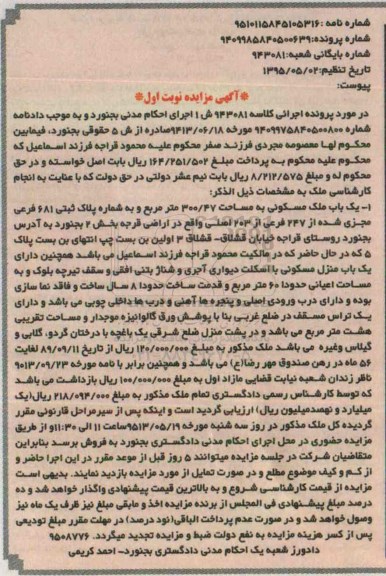 شماره نامه :۹۵۱۰۱۱۵۸۴۵۱۰۵۳۱۶
شماره پرونده:۹۴۰۹۹۸۵۸۴۰۵۰۰۶۳۹
شماره بایگانی شعبه:۹۴۳۰۸۱
تاریخ تنظیم:۱۳۹۵/۰۵/۰۲
پیوست:
*آگهی مزایده نوبت اول*
در مورد پرونده اجرائی کلاسه ۹۴۳۰۸۱ ش ۱ اجرای احکام مدنی بجنورد و به موجب دادنامه
شماره ۹۴۰۹۹۷۵۸۴۰۵۰۰۸۰۰ مورخه ۹۴۱۳/۰۶/۱۸صادره از ش ۵ حقوقی بجنورد، فیمابین
محکوم لها معصومه مجردی فرزند صفر محکوم علیه محمود قراجه فرزند اسماعیل که
محکوم علیه محکوم به پرداخت مبلغ ۱۶۴/۲۵۱/۵۰۲ ریال بابت اصل خواسته و در حق
محکوم له و مبلغ ۸/۲۱۲/۵۷۵ ریال بابت نیم عشر دولتی در حق دولت که با عنایت به انجام
کارشناسی ملک به مشخصات ذیل الذکر:
۱- یک باب ملک مسکونی به مساحت ۳۰۰/۴۷ متر مربع و به شماره پلاک ثبتی ۶۸۱ فرعی
مجزی شده از ۲۴۷ فرعی از ۲۰۳ اصلی واقع در اراضی قرجه بخش ۲ بجنورد به آدرس
بجنورد روستای قراجه خیابان قشلاق- قشلاق ۳ اولین بن بست چپ انتهای بن بست پلاک
۵ که در حال حاضر که در مالکیت محمود قراجه فرزند اسماعیل می باشد همچنین دارای
یک باب منزل مسکونی با اسکلت دیواری آجری و شناژ بتنی افقی و سقف تیرچه بلوک و به
مساحت اعیانی حدودا ۶۰ متر مربع و قدمت ساخت حدودا ۸ سال ساخت و فاقد نما سازی
بوده و دارای درب ورودی اصلی و پنجره ها آهنی و درب ها داخلی چوبی می باشد و دارای
یک تراس مسقف در ضلع غربی بنا با پوشش ورق گالوانیزه موجدار و مساحت تقریبی
هشت متر مربع می باشد و در پشت منزل ضلع شرقی یک باغچه با درختان گردو، گلابی و
گیلاس وغیره می باشد ملک مذکور به مبلغ ۱۲۰/۰۰۰/۰۰۰ ریال از تاریخ ۸۹/۰۹/۱۱ لغایت
۵۶ ماه در رهن صندوق مهر رضا(ع) می باشد و همچنین برابر با نامه مورخه ۹۰۱۳/۰۹/۲۳
ناظر زندان شعبه نیابت قضایی مازاد اول به مبلغ ۱۰۰/۰۰۰/۰۰۰ ریال بازداشت می باشد
که توسط کارشناس رسمی دادگستری تمام ملک مذکور به مبلغ ۲۱۸/۰۹۴/۰۰۰ ریال(یک
میلیارد و نهصدمیلیون ریال) ارزیابی گردید است و اینکه پس از سیرمراحل قارنونی مقرر
گردیده کل ملک مذکور در روز سه شنبه مورخه ۹۵۱۳/۰۵/۱۹ساعت ۱۱ الی ۱۱:۳۰و از طریق
مزایده حضوری در محل اجرای احکام مدنی دادگستری بجنورد به فروش برسد بنابراین
متقاضیان شرکت در جلسه مزایده میتوانند ۵ روز قبل از موعد مقرر در این اجرا حاضر و
از کم و کیف موضوع مطلع و در صورت تمایل از مورد مزایده بازدید نمایند. بدیهی است
مزایده از قیمت کارشناسی شروع و به بالاترین قیمت پیشنهادی واگذار خواهد شد و ده
درصد مبلغ پیشنهادی فی المجلس از برنده مزایده اخذ و مابقی مبلغ نیز ظرف یک ماه نیز
وصول خواهد شد و در صورت عدم پرداخت الباقی(نود درصد) در مهلت مقرر مبلغ تودیعی
پس از کسر هزینه مزایده به نفع دولت ضبط و مزایده تجدید میگردد. ۹۵۰۸۷۷۶
دادورز شعبه یک احکام مدنی دادگستری بجنورد- احمد کریمی